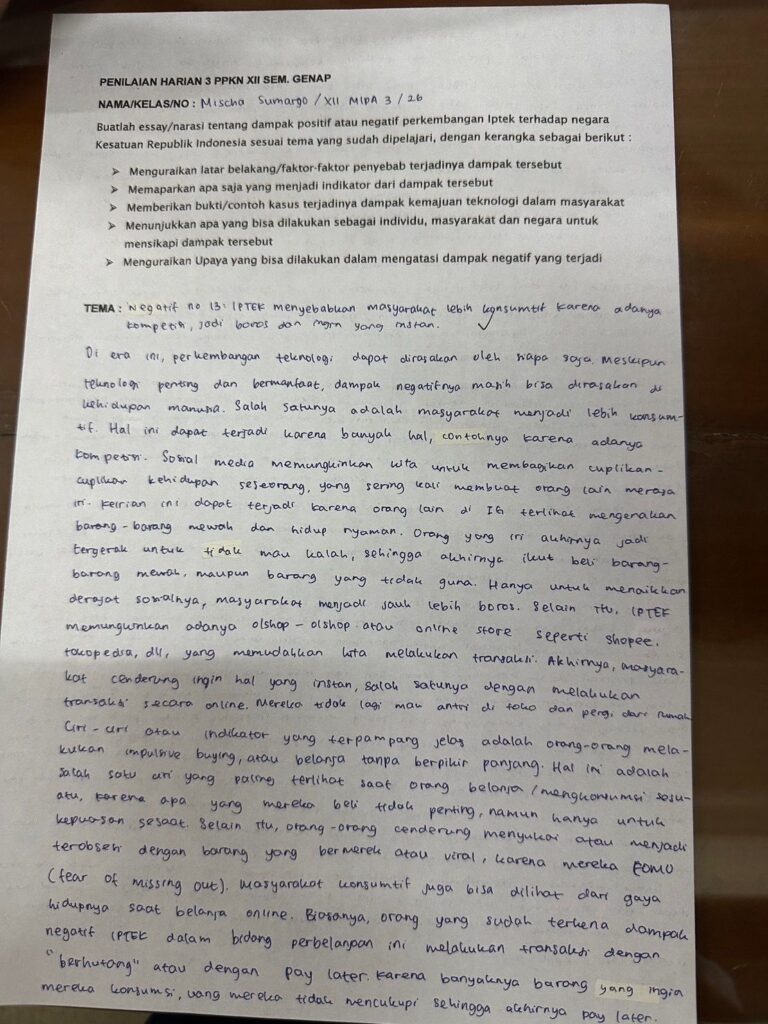 PENILAIAN HARIAN 3 PPKN XII SEM. GENAP
NAMA/KELAS/NO : Mischa Sumargo / XII MIPA 3 / 26
Buatlah essay/narasi tentang dampak positif atau negatif perkembangan Iptek terhadap negara
Kesatuan Republik Indonesia sesuai tema yang sudah dipelajari, dengan kerangka sebagai berikut :
➤ Menguraikan latar belakang/faktor-faktor penyebab terjadinya dampak tersebut
➤ Memaparkan apa saja yang menjadi indikator dari dampak tersebut
➤ Memberikan bukti/contoh kasus terjadinya dampak kemajuan teknologi dalam masyarakat
➤ Menunjukkan apa yang bisa dilakukan sebagai individu, masyarakat dan negara untuk
mensikapi dampak tersebut
➤ Menguraikan Upaya yang bisa dilakukan dalam mengatasi dampak negatif yang terjadi
TEMA : Negatif no 13: IPTEK menyebabkan masyarakat lebih konsumtif karena adanya
kompetisi, jadi boros dan ingin yang instan.
Di era ini, perkembangan teknologi dapat dirasakan oleh siapa saja. Meskipun
teknologi penting dan bermanfaat, dampak negatifnya masih bisa dirasakan di
kehidupan manusia. Salah satunya adalah masyarakat menjadi lebih konsum-
tif. Hal ini dapat terjadi karena banyak hal, contohnya karena adanya
kompetisi. Sosial media memungkinkan kita untuk membagikan cuplikan-
cuplikan kehidupan seseorang, yang sering kali membuat orang lain merasa
iri. Keirian ini dapat terjadi karena orang lain di IG terlihat mengenakan
barang-barang mewah dan hidup nyaman. Orang yang iri akhirnya jadi
tergerak untuk tidak mau kalah, sehingga akhirnya ikut beli barang-
barang mewah, maupun barang yang tidak guna. Hanya untuk menaikkan
derajat sosialnya, masyarakat menjadi jauh lebih boros. Selain itu, IPTEK
memungkinkan adanya olshop-olshop atau online store seperti shopee,
tokopedia, dll, yang memudahkan kita melakukan transaksi. Akhirnya, masyara-
kat cenderung ingin hal yang instan, salah satunya dengan melakukan
transaksi secara online. Mereka tidak lagi mau antri di toko dan pergi dari rumah
Ciri-ciri atau indikator yang terpampang jelas adalah orang-orang mela-
kukan impulsive buying, atau belanja tanpa berpikir panjang. Hal ini adalah
salah satu ciri yang paling terlihat saat orang belanja / mengkonsumsi sesu-
atu, karena apa yang mereka beli tidak penting, namun hanya untuk
kepuasan sesaat. Selain itu, orang-orang cenderung menyukai atau menjadi
terobsesi dengan barang yang bermerek atau viral, karena mereka FOMO
(fear of missing out). Masyarakat konsumtif juga bisa dilihat dari gaya
hidupnya saat belanja online. Biasanya, orang yang sudah terkena dampak
negatif IPTEK dalam bidang perbelanjaan ini melakukan transaksi dengan
"berhutang" atau dengan pay later. Karena banyaknya barang yang ingin
mereka konsumsi, uang mereka tidak mencukupi sehingga akhirnya pay later.